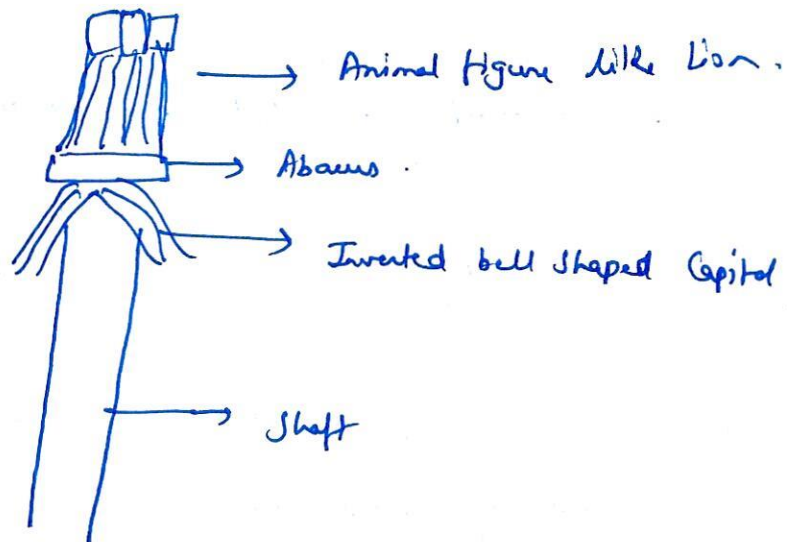 Animal figure like Lion.
Abacus.
Inverted bell shaped Capital
Shaft